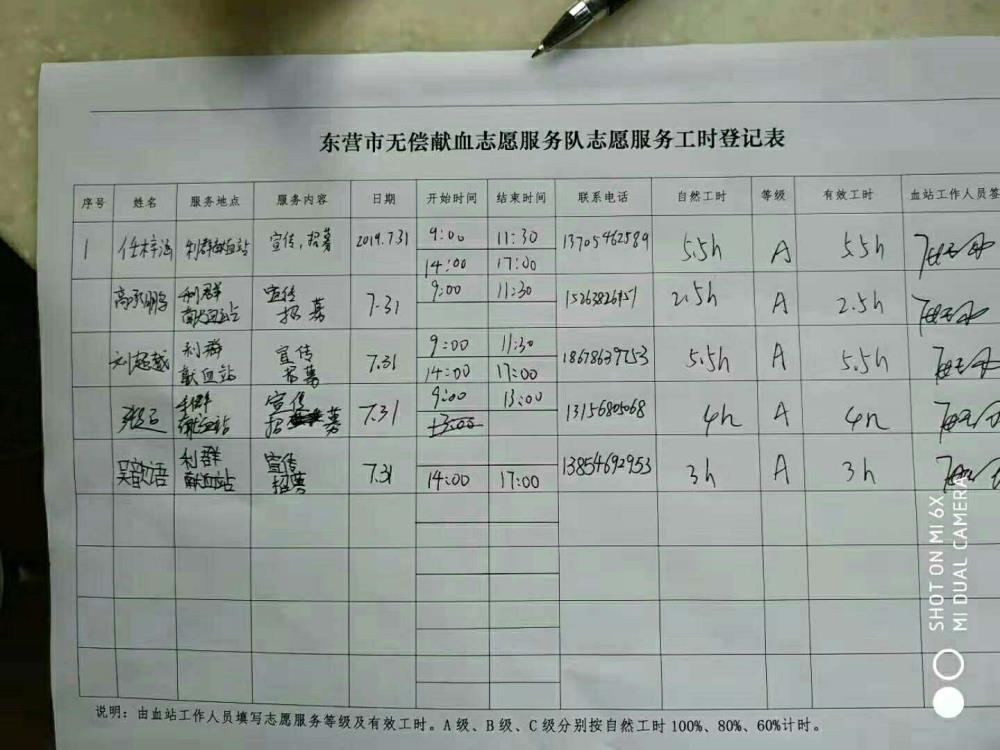 东营市无偿献血志愿服务队志愿服务工时登记表
序号 姓名 服务地点 服务内容 日期 开始时间 结束时间 联系电话 自然工时 等级 有效工时 血站工作人员签
1 任梓涵 利群献血站 宣传,招募 2019.7.31 9:00 11:30 13705462589 5.5h A 5.5h
14:00 17:00
高承鹏 利群 宣传 7.31 9:00 11:30 2.5h A 2.5h
献血站 招募
刘超越 利群 宣传 7.31 9:00 11:30 18678639753 5.5h A 5.5h
献血站 招募 14:00 17:00
利群 宣传 7.31 9:00 13:00 13156805068 4h A 4h
献血站 招募 13:00
吴歆语 利群 宣传 7.31 13854692953 3h A 3h
献血站 招募 14:00 17:00
说明:由血站工作人员填写志愿服务等级及有效工时。A级、B级、C级分别按自然工时100%、80%、60%计时。
SHOT ON MI 6X
MI DUAL CAMERA